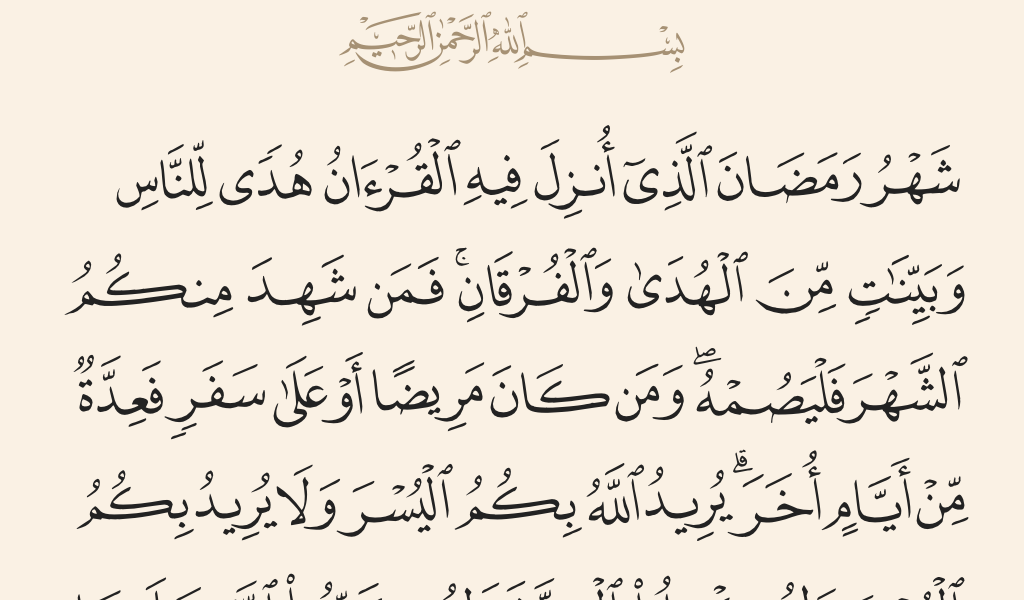 بِسْمِ ٱللَّهِ ٱلرَّحْمَٰنِ ٱلرَّحِيمِ
شَهْرُ رَمَضَانَ ٱلَّذِىٓ أُنزِلَ فِيهِ ٱلْقُرْءَانُ هُدًى لِّلنَّاسِ
وَبَيِّنَٰتٍ مِّنَ ٱلْهُدَىٰ وَٱلْفُرْقَانِ ۚ فَمَن شَهِدَ مِنكُمُ
ٱلشَّهْرَ فَلْيَصُمْهُ ۖ وَمَن كَانَ مَرِيضًا أَوْ عَلَىٰ سَفَرٍ فَعِدَّةٌ
مِّنْ أَيَّامٍ أُخَرَ ۗ يُرِيدُ ٱللَّهُ بِكُمُ ٱلْيُسْرَ وَلَا يُرِيدُ بِكُمُ